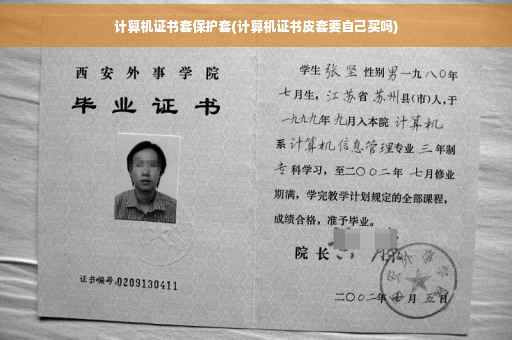 计算机证书套保护套(计算机证书皮套要自己买吗)
西安外事学院
毕业证书
证书编号:0209130411
学生 张坚 性别 男 一九八〇年
七月生, 江苏省 苏州县(市)人,于
一九九九年 九月入本院 计算机
系 计算机信息管理专业 三 年制
专科学习,至二〇〇二年 七月修业
期满,学完教学计划规定的全部课程,
成绩合格,准予毕业。
院长
二〇〇二年 月 五日